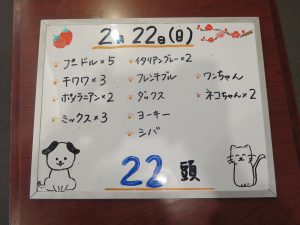 2月22日(日)
プードル×5
チワワ×3
ポメラニアン×2
ミックス×3
イタリアングレー×2
フレンチブル
ダックス
ヨーキー
シバ
ワンちゃん
ネコちゃん×2
22頭